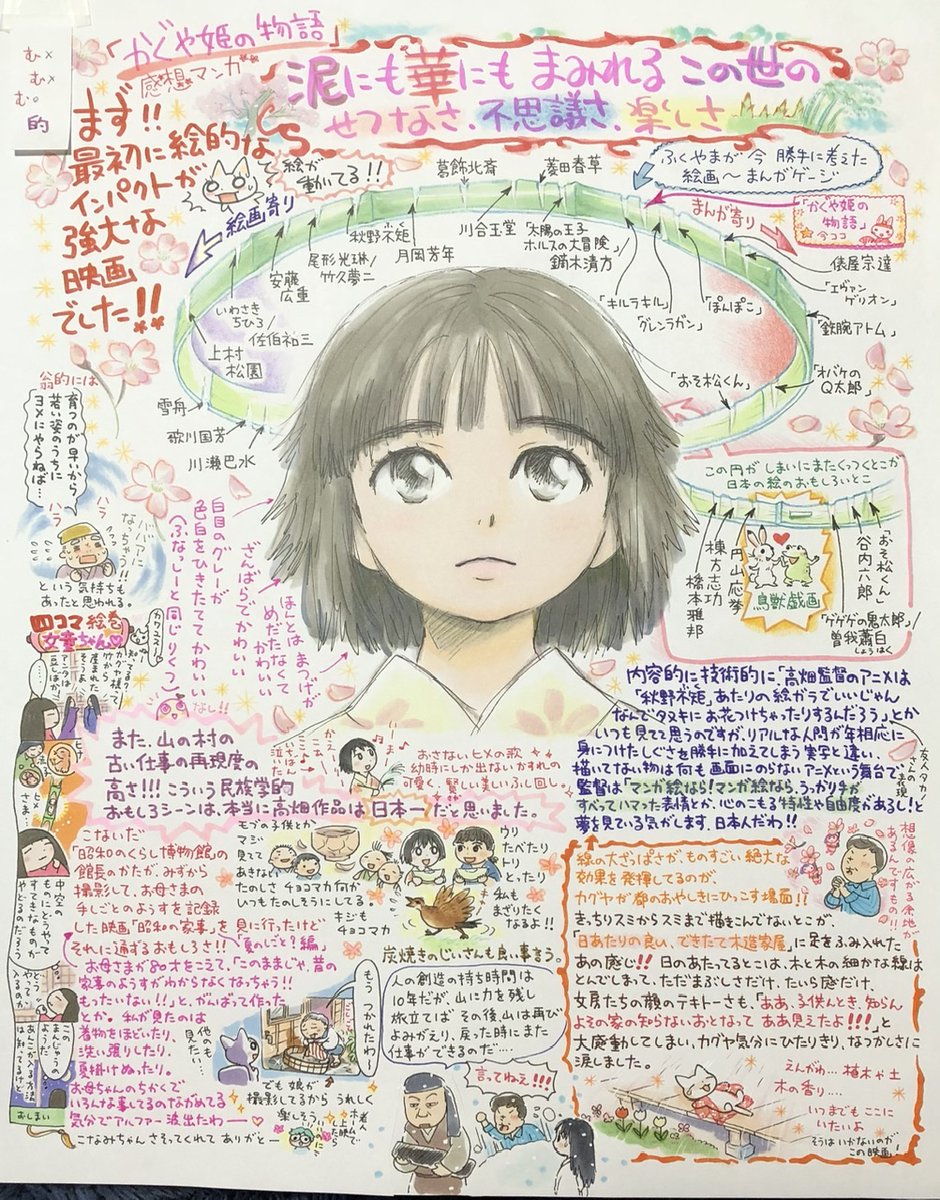 むˣ
むˣ
む。
的
「かぐや姫の物語」
感想マンガ
泥にも華にもまみれるこの世の
せつなさ、不思議さ、楽しさ
まず!!
最初に絵的な
インパクトが
強大な
映画
でした!!
絵が
動いてる!!
ふくやまが今勝手に考えた
絵画〜まんがゲージ
絵画寄り
まんが寄り
「かぐや姫の
物語」
今ココ
葛飾北斎
菱田春草
川合玉堂
「太陽の王子
ホルスの大冒険」
鏑木清方
秋野不矩
月岡芳年
尾形光琳/
竹久夢二
安藤
広重
いわさき
ちひろ/
佐伯祐三
上村
松園
雪舟
歌川国芳
川瀬巴水
「キルラキル」
「グレンラガン」
「ぽんぽこ」
俵屋宗達
「エヴァン
ゲリオン」
「鉄腕アトム」
「オバケの
Q太郎」
「おそ松くん」
この円がしまいにまたくっつくとこが
日本の絵のおもしろいとこ
橋本雅邦
棟方志功
円山応挙
鳥獣戯画
「おそ松くん」
谷内六郎
「ゲゲゲの鬼太郎」/
曽我蕭白
しょうはく
翁的には
育つのが早いから
若い姿のうちに
ヨメにやらねば…
ハラ
ハラ
ババアに
なっちゃう!!
という気持ちも
あったと思われる。
ほんとはまつげが
めだたなくて
かわいい
ざんばらでかわいい
白目のグレーが
色白をひきたててかわいい
(ふなっしーと同じりくつ)
なし!!
四コマ絵巻
女童ちゃん
カワユス〜
おしまい
また、山の村の
古い仕事の再現度の
高さ!!!こういう民族学的
おもしろシーンは、本当に高畑作品は日本一だと思いました。
おさないヒメの歌
幼時にしか出ないかすれの
可憐く、賢しい美しいふし回し
内容的に技術的に、「高畑監督のアニメは
「秋野不矩」あたりの絵がらでいいじゃん
なんでタスキにお花つけちゃったりするんだろう」とか
いつも見てて思うのですが、リアルな人間が年相応に
身につけたしぐさを勝手に加えてしまう実写と違い、
描いてない物は何も画面にのらないアニメという舞台で、
監督は「マンガ絵なら!マンガ絵なら、うっかりチカ
すべっていハマった表情とか、心のこもる特性や自由度があるし!と
夢を見ている気がします。日本人だわ!!
想像の広がる余地が
あるんですもの!!
こないだ
「昭和のくらし博物館」の
館長のかたが、みずから
撮影して、お母さまの
手しごとのようすを記録
した映画「昭和の家事」を見に行ったけど
夏のしごと?編」
それに通ずるおもしろさ!!
お母さまが80才をこえて、「このままじゃ、昔の
家事のようすがわからなくなっちゃう!!
もったいない!!」と、がんばって作った
とか。私が見たのは
着物をほどいたり、
洗い張りしたり、
夏掛けぬったり。
お母ちゃんのちかくで
いろんな事してるのながめてる
気分でアルファー波出たわ―
こなみちゃんさそってくれてありがと―
モブの子供とか
マジ
見てて
あきない
たのしさ
チョコマカ何か
いつもたのしそうにしてる。
キジも
チョコマカ
ウリ
たべたり
トリ
とったり
私も
まざりたく
なるよ!!
炭焼きのじいさんも良い事言う。
人の創造の持ち時間は
10年だが、山に力を残し
旅立てば その後、山は再び
よみがえり、戻った時にまた
仕事ができるのだ…
もうつかれたわー
でも娘が
撮影してるから うれしく
楽しそう
言ってねえ!!!
線の大ざっぱさが、ものすごい絶大な
効果を発揮してるのが
カグヤが都のおやしきにひっこす場面!!
きっちりスミからスミまで描きこんでないとこが、
「日あたりの良い、できたて木造家屋」に足をふみ入れた
あの感じ!!日のあたってるとこは、木と木の細かな線は
とんでしまって、ただまぶしさだけ、たいら感だけ。
女房たちの顔のテキトーさも、「ああ、子供んとき、知らん
よその家の知らないおとなって ああ見えたよ!!!」と
大感動してしまい、カグヤ気分にひたりきり、なつかしさに
涙しました。
えんがわ…植木や土
木の香り…
いつまでもここに
いたいよ
そうはいかないのが
この映画!